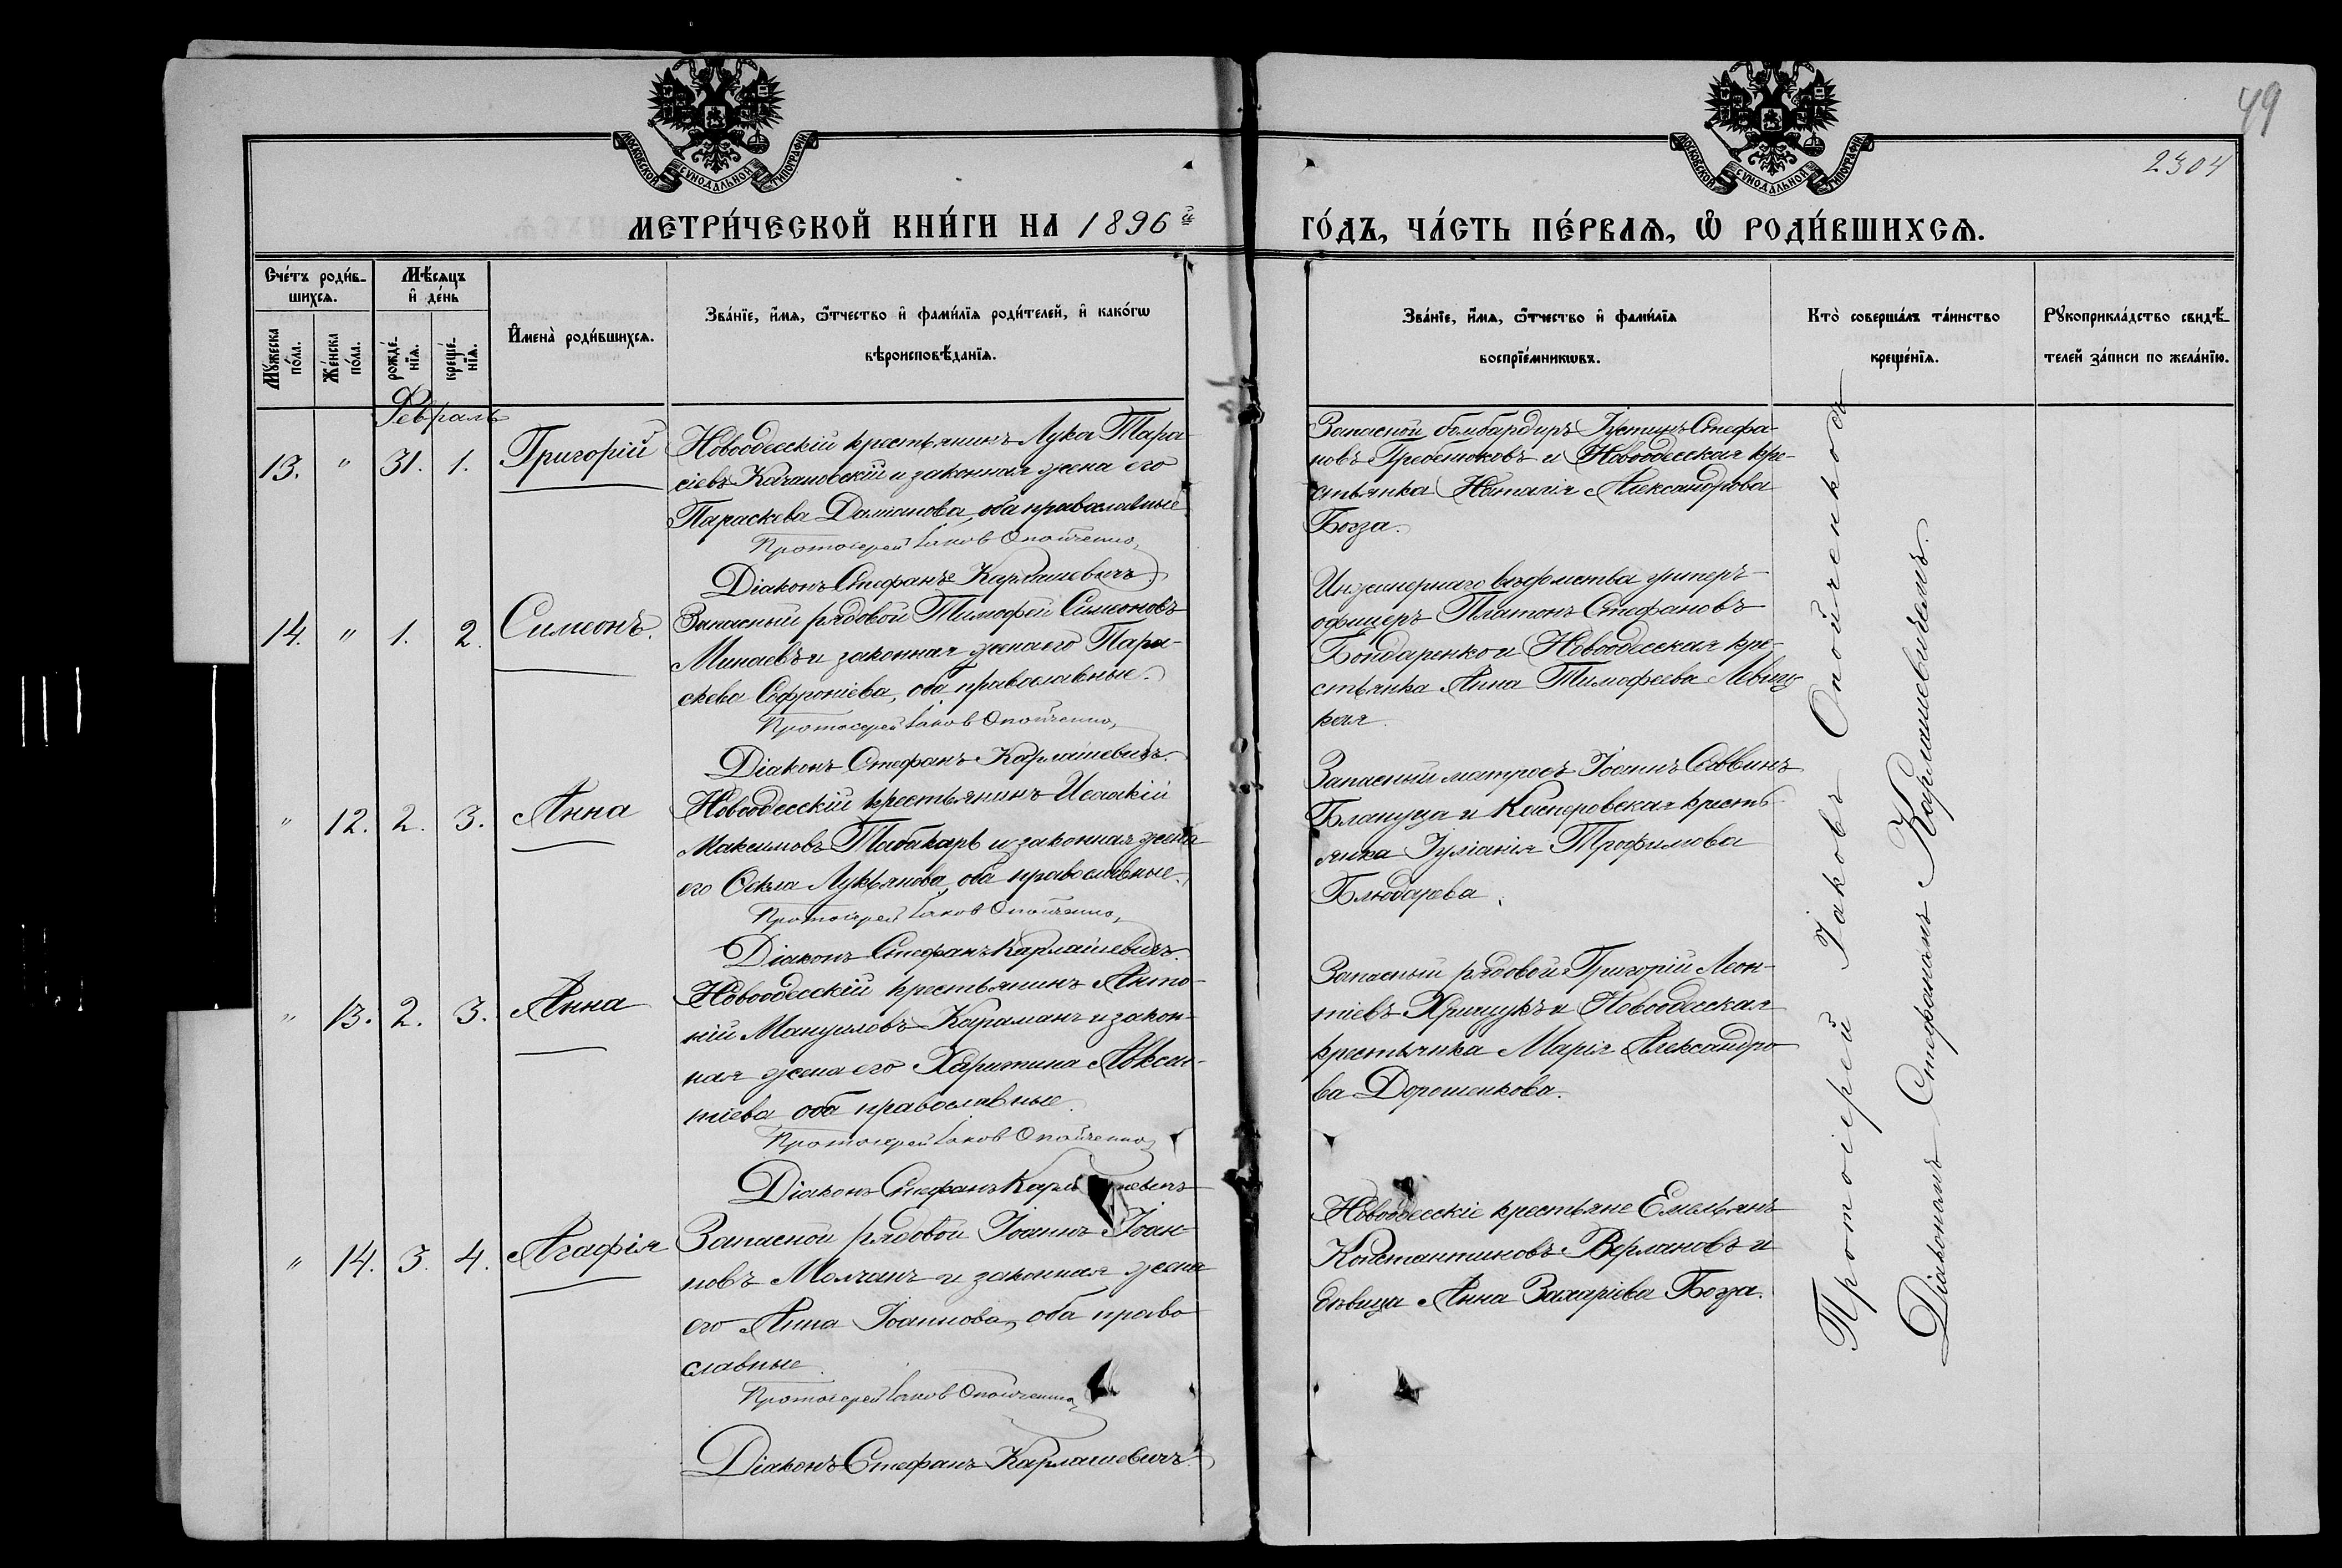 49
2304
МОСКОВСКОЙ СѴНОДАЛЬНОЙ ТИПОГРАФІИ
МОСКОВСКОЙ СѴНОДАЛЬНОЙ ТИПОГРАФІИ
МЕТРИ́ЧЕСКОЙ КНИ́ГИ НА 1896й ГО́ДЪ, ЧА́СТЬ ПЕ́РВАѦ, Ѡ РОДИ́ВШИХСѦ.
Счéтъ роди́в-
шихсѧ.
Мѣ́сѧцъ
и҆ дéнь
Мꙋ́жеска
пóла.
Жéнска
пóла.
рождé-
нїѧ.
крещé-
нїѧ.
И҆менà роди́вшихсѧ.
Звáнїе, и҆́мѧ, ѻ҆́тчество и҆ фами́лїѧ роди́телей, и҆ какóгѡ
вѣроисповѣ́данїѧ.
Звáнїе, и҆́мѧ, ѻ҆́тчество и҆ фами́лїѧ
воспрїéмникѡвъ.
Ктò совершáлъ тáинство
крещéнїѧ.
Рꙋкоприклáдство свидѣ́-
телей зáписи по желáнїю.
Февраль
13. " 31. 1. Григорій
Новоодесскій крестьянинъ Лука Тара-
сіевъ Качановскій и законная жена его
Параскева Даміанова, оба православные.
Протоіерей Іаков Опойченко,
Діаконъ Стефанъ Карлашевичъ.
Запасной бомбардиръ Іустинъ Стефа-
новъ Гребенюковъ и Новоодесская кре-
стьянка Наталія Александрова
Богза.
14. " 1. 2. Симеонъ.
Запасный рядовой Тимофей Симеоновъ
Минаевъ и законная жена его Пара-
скева Софроніева, оба православные.
Протоіерей Іаков Опойченко,
Діаконъ Стефанъ Карлашевичъ.
Инженернаго вѣдомства унтеръ-
офицеръ Платонъ Стефановъ
Бондаренко и Новоодесская кре-
стьянка Анна Тимофеева Левиц-
кая.
" 12. 2. 3. Анна
Новоодесскій крестьянинъ Исаакій
Максимовъ Табакарь и законная жена
его Ѳекла Лукьянова, оба православные.
Протоіерей Іаков Опойченко,
Діаконъ Стефанъ Карлашевичъ.
Запасный матросъ Іоаннъ Саввинъ
Блануца и Касперовская кресть-
янка Іуліанія Трофимова
Блюдарева.
" 13. 2. 3. Анна
Новоодесскій крестьянинъ Анто-
ній Мануиловъ Караманъ и закон-
ная жена его Харитина Авксен-
тіева оба православные.
Протоіерей Іаков Опойченко,
Діаконъ Стефанъ
Запасный рядовой Григорій Леон-
тіевъ Хрищукъ и Новоодесская
крестьянка Марія Александро-
ва Дорошенкова.
" 14. 3. 4. Агафія
Запасной рядовой Іоаннъ Іоан-
новъ Молчанъ и законная жена
его Анна Іоаннова, оба право-
славные.
Протоіерей Іаков Опойченко,
Діаконъ Стефанъ Карлашевичъ.
Новоодесскіе крестьяне Емельянъ
Константиновъ Верлановъ и
дѣвица Анна Захаріева Богза.
Протоіерей Іаковъ Опойченко съ
Діакономъ Стефаномъ Карлашевичемъ.